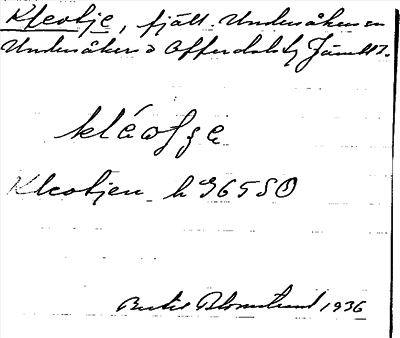 Kleotje, fjäll. Undersåkers sn
Undersåkers o Offerdals tg Jämtl.
kléoʃʒe
Kleotjen h 965 SO
Bertil Blomstrand 1936